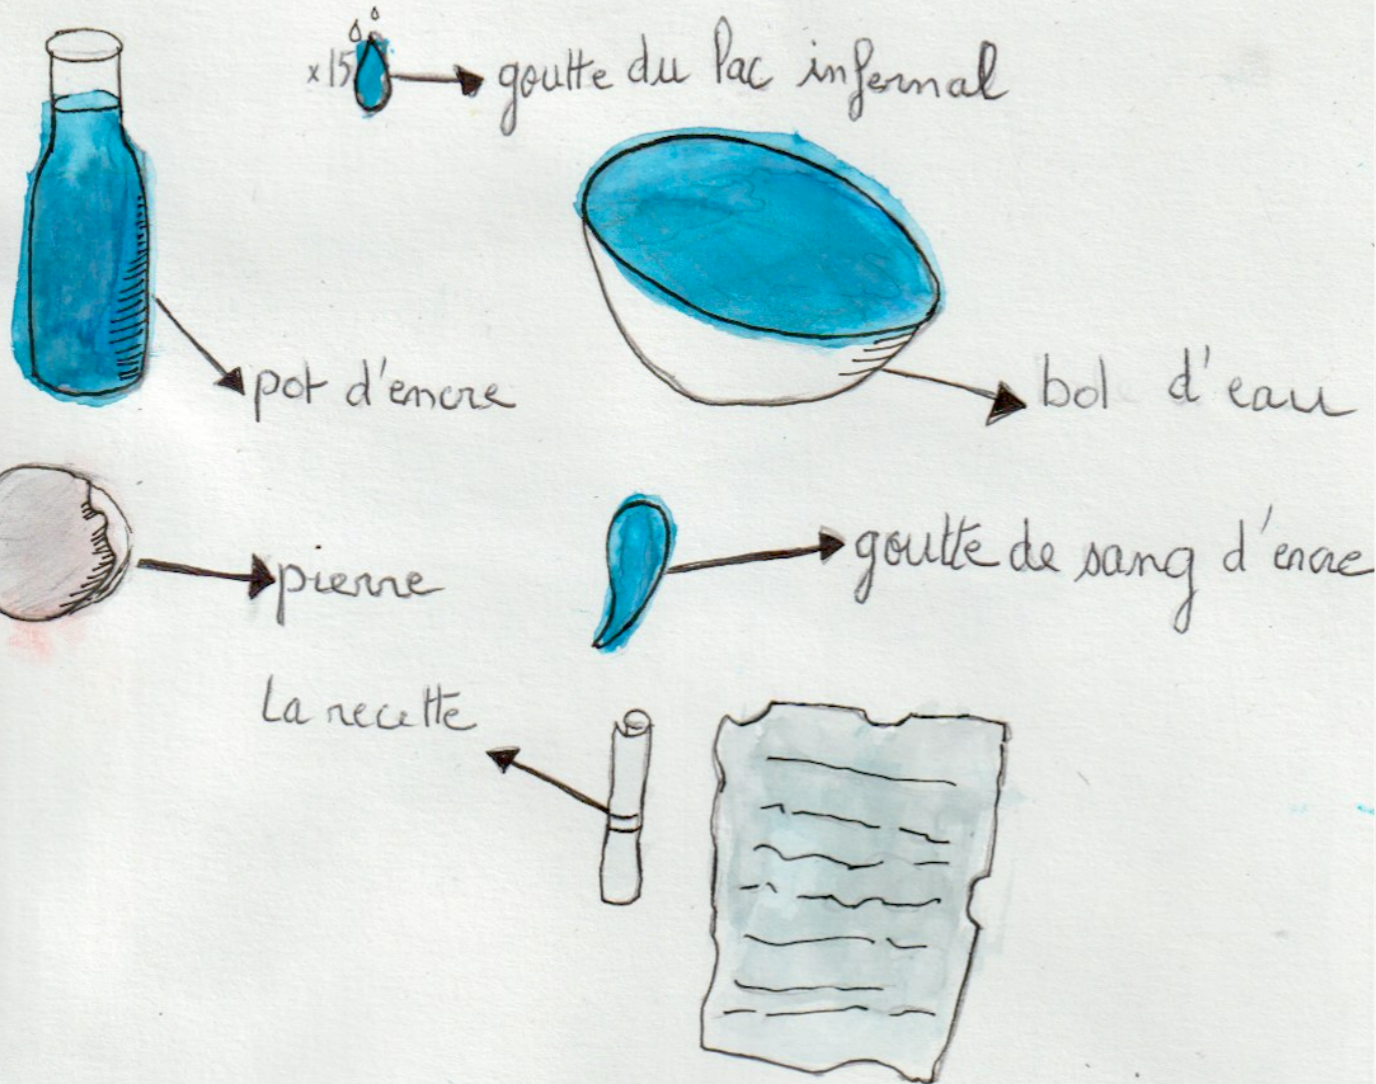 x15 goutte du lac infernal
pot d'encre
bol d'eau
pierre
goutte de sang d'encre
La recette